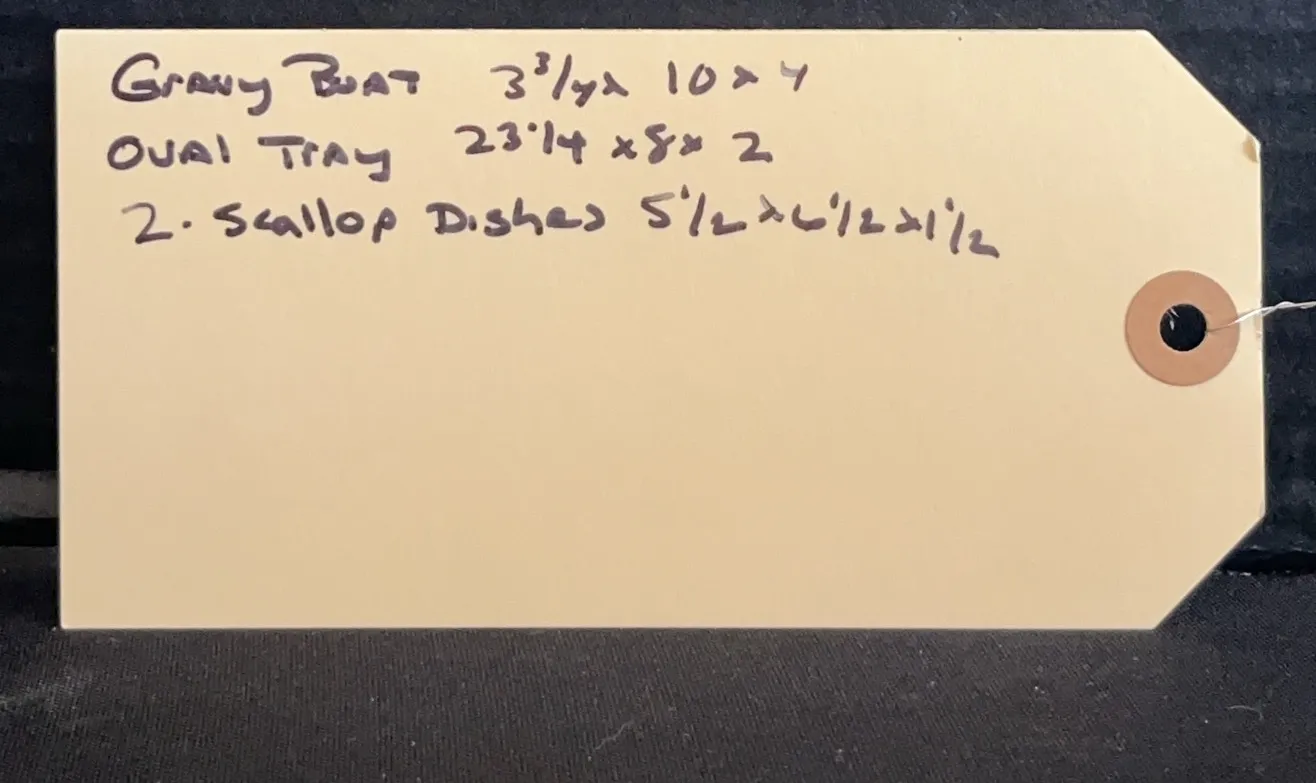 Gravy Boat 3 3/4 x 10 x 4
Oval Tray 23 1/4 x 8 x 2
2. Scallop Dishes 5 1/2 x 6 1/2 x 1 1/2